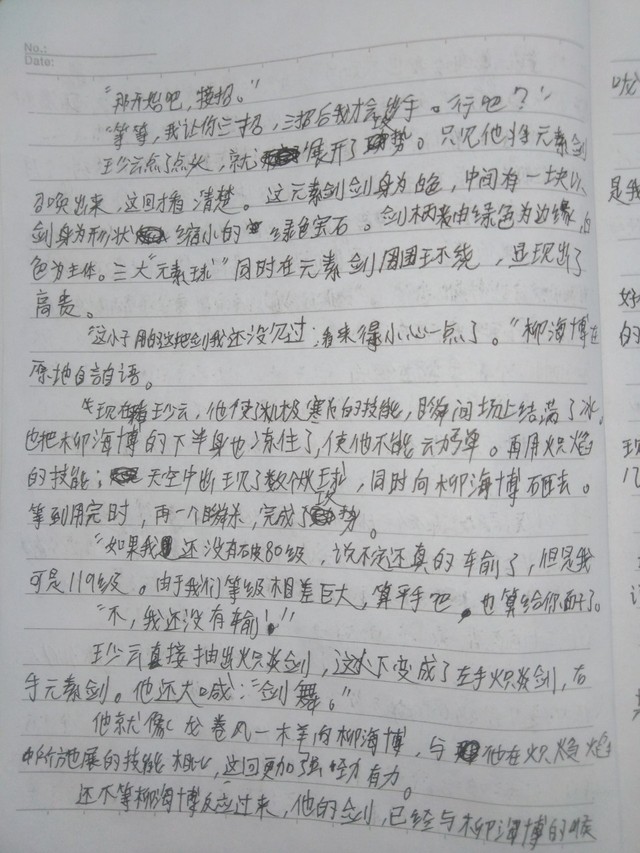 No.:
Date:
"那开始吧,接招。"
"等等,我让你三招,三招后我才会出手。行吧?"
王少云点了点头,就展开了攻势。只见他将元素剑
召唤出来,这回才看清楚。这元素剑剑身为白色,中间有一块以
剑身为形状缩小的绿色宝石。剑柄表由绿色为边缘,白
色为主体。三大"元素球"同时在元素剑周围环绕,显现出了
高贵。
"这小子用的这把剑我还没见过;看来得小心一点了。"柳海博在
原地自言自语。
现在王少云,他使了极寒的技能,瞬间场上结满了冰,
也把柳海博的下半身也冻住了,使他不能动弹。再用炽焰
的技能;天空中出现了数个火球,同时向柳海博砸去。
等到用完时,再一个瞬米,完成了攻势。
"如果我还没有破80级,说不定还真的输了,但是我
可是119级。由于我们等级相差巨大,算平手吧,也算给你面子了。
"不,我还没有输!"
王少云直接抽出炽炎剑,这下变成了左手炽炎剑,右
手元素剑。他还大喊:"剑舞。"
他就像龙卷风一样向柳海博,与他在炽焰
中所施展的技能相比,这回更加强劲有力。
还不等柳海博反应过来,他的剑,已经与柳海博的喉
吃
是我
好
的
现